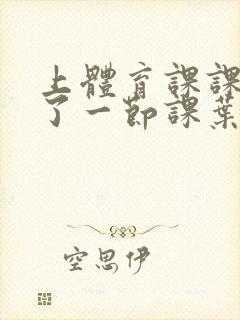 上體育課課
了一節課葉
空思伊